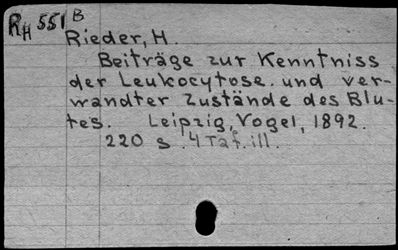 RH 551 B
Rieder, H.
Beiträge zur Kenntniss
der Leukocytose und ver-
wandter Zustände des Blu-
tes. Leipzig, Vogel, 1892.
220 s. 4 Taf. ill.